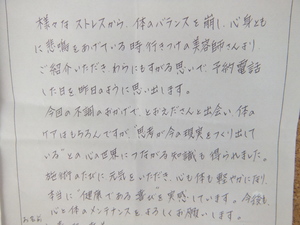 様々なストレスから、体のバランスを崩し、心身ともに
に悲鳴をあげている時 行きつけの美容師さんより、
ご紹介いただき、わらにもすがる思いで、予約電話
した日を昨日のように思い出します。
今回の不調のおかげで、とおえださんと出会い、体の
ケアはもちろんですが、"思考が今の現実をつくり出して
いる"との心の世界につながる知識も得られました。
施術のたびに元気をいただき、心も体も軽やかになり、
本当に"健康である喜び"を実感しています。今後も
心と体のメンテナンスをよろしくお願いします。
お名前